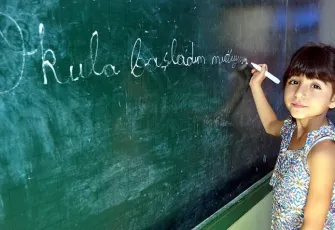 Okula başladım